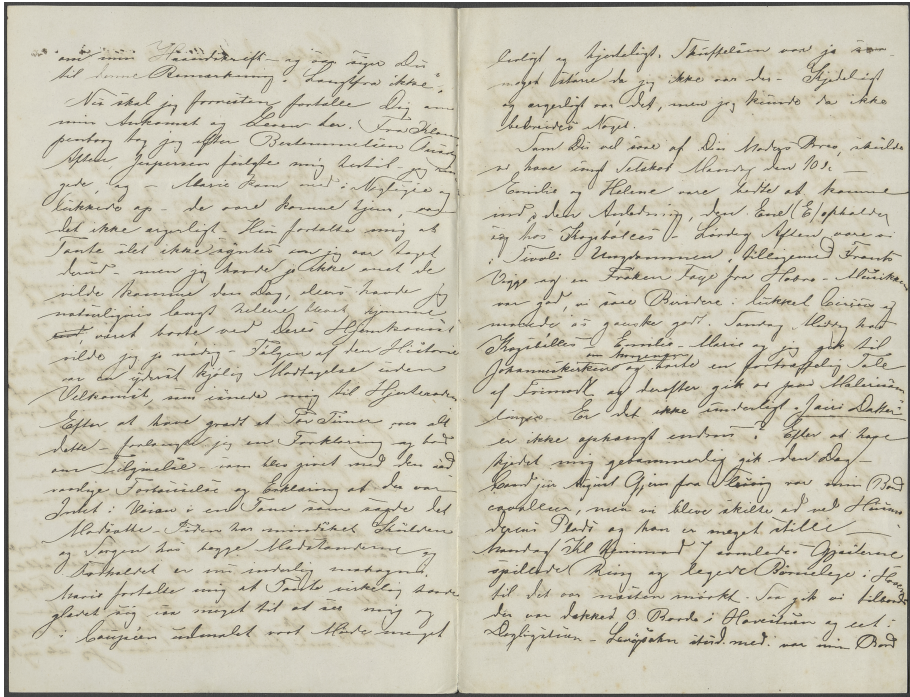 om min Haandskrift – og saa siger Du
til denne Bemærkning "Langtfra ikke".
Nu skal jeg forresten fortælle Dig om
min Ankomst og Leven her. Fra Klam
penborg tog jeg efter Bestemmelsen
Aften, Jespersen fulgte mig dertil, jeg
gede, og – Marie kom ned i Negligee og
lukkede op – de vare komne hjem, var
det ikke ærgerligt. Hun fortalte mig at
Tante slet ikke syntes om jeg var taget
derud – men jeg havde jo ikke anet de
vilde komme den Dag, ellers havde jeg
naturligvis langt hellere blevet hjemme
været borte ved Deres Hjemkomst
vilde jeg jo nødig – Følgen af den Historie
var en yderst kjølig Modtagelse uden
Velkomst, som isnede mig til Hjerteroden
Efter at have grædt et Par Timer over alt
dette – forlangte jeg en Forklaring og bad
om Tilgivelse – som blev givet med den sæd
vanlige Fortsættelse og Erklæring at der var
Intet i Veien i en Tone som sagde det
Modsatte. Tiden har mindsket Skylden
og Sorgen hos begge Modstanderne og
Forholdet er nu inderlig
Marie fortalte mig at Tante virkelig havde
glædet sig saa meget til at see mig og
i Coupeen udmalet vort Møde meget
livligt og hjerteligt. Skuffelsen var jo saa
meget større da jeg ikke var der – Kjedeligt
og ærgerligt var det, men jeg kunde da ikke
bebreides Noget.
Som Du vel saae af Din Moders Brev, skulde
vi have ungt Selskab Mandag den 10de –
Emilie og Helene vare bedte at komme
ind i den Anledning, den Ene (E) opholder
sig hos Krogboelles – Lørdag Aften vare vi
i Tivoli Ungdommen, tilligemed Frants
Vigge og en Frøken Faye fra Hobro – Musikken
var god, vi saae Beridere i lukket Circus og
morede os ganske godt. Søndag Middag
– Emilie – Marie og jeg gik til
om Morgenen
Johanneskirken og hørte en fortræffelig Tale
af Frimodt og derefter gik vi paa Maleriud
Er det ikke underligt "Jairi Datter"
er ikke ophængt endnu? Efter at have
kjedet mig gik den Dag –
Cand jur August Gjern fra var min Bord
cavalleer, men vi bleve skilte ad ved
Plads og han er meget stille –
Mandag Kl 7 samledes Gjæsterne
spillede Ring og legede Pantelege i Haven
til det var næsten mørkt. Saa gik vi tilbords
der var dækket 3 Borde i Havestuen og eet i
Dagligstuen – stud. med. var min Bord